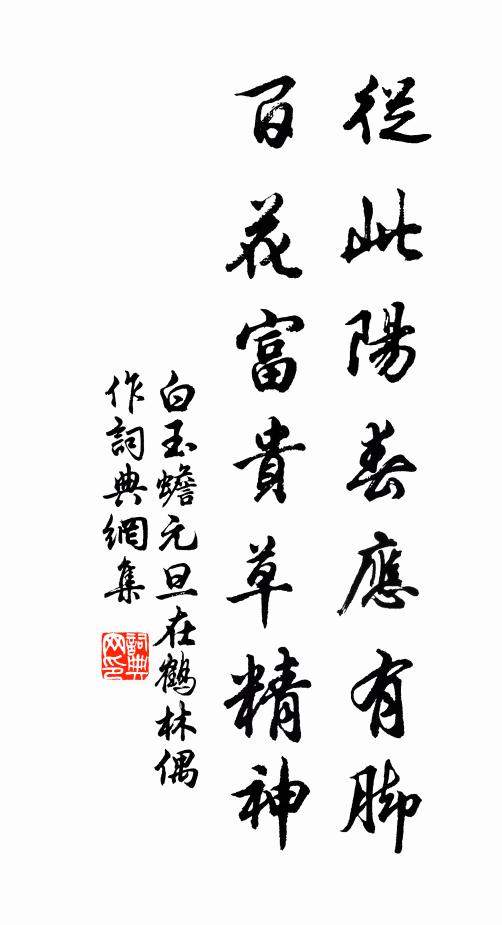 從此陽春應有脚
百花富貴草精神
白玉蟾元旦在鶴林偶
作詞典網集
詞典網印